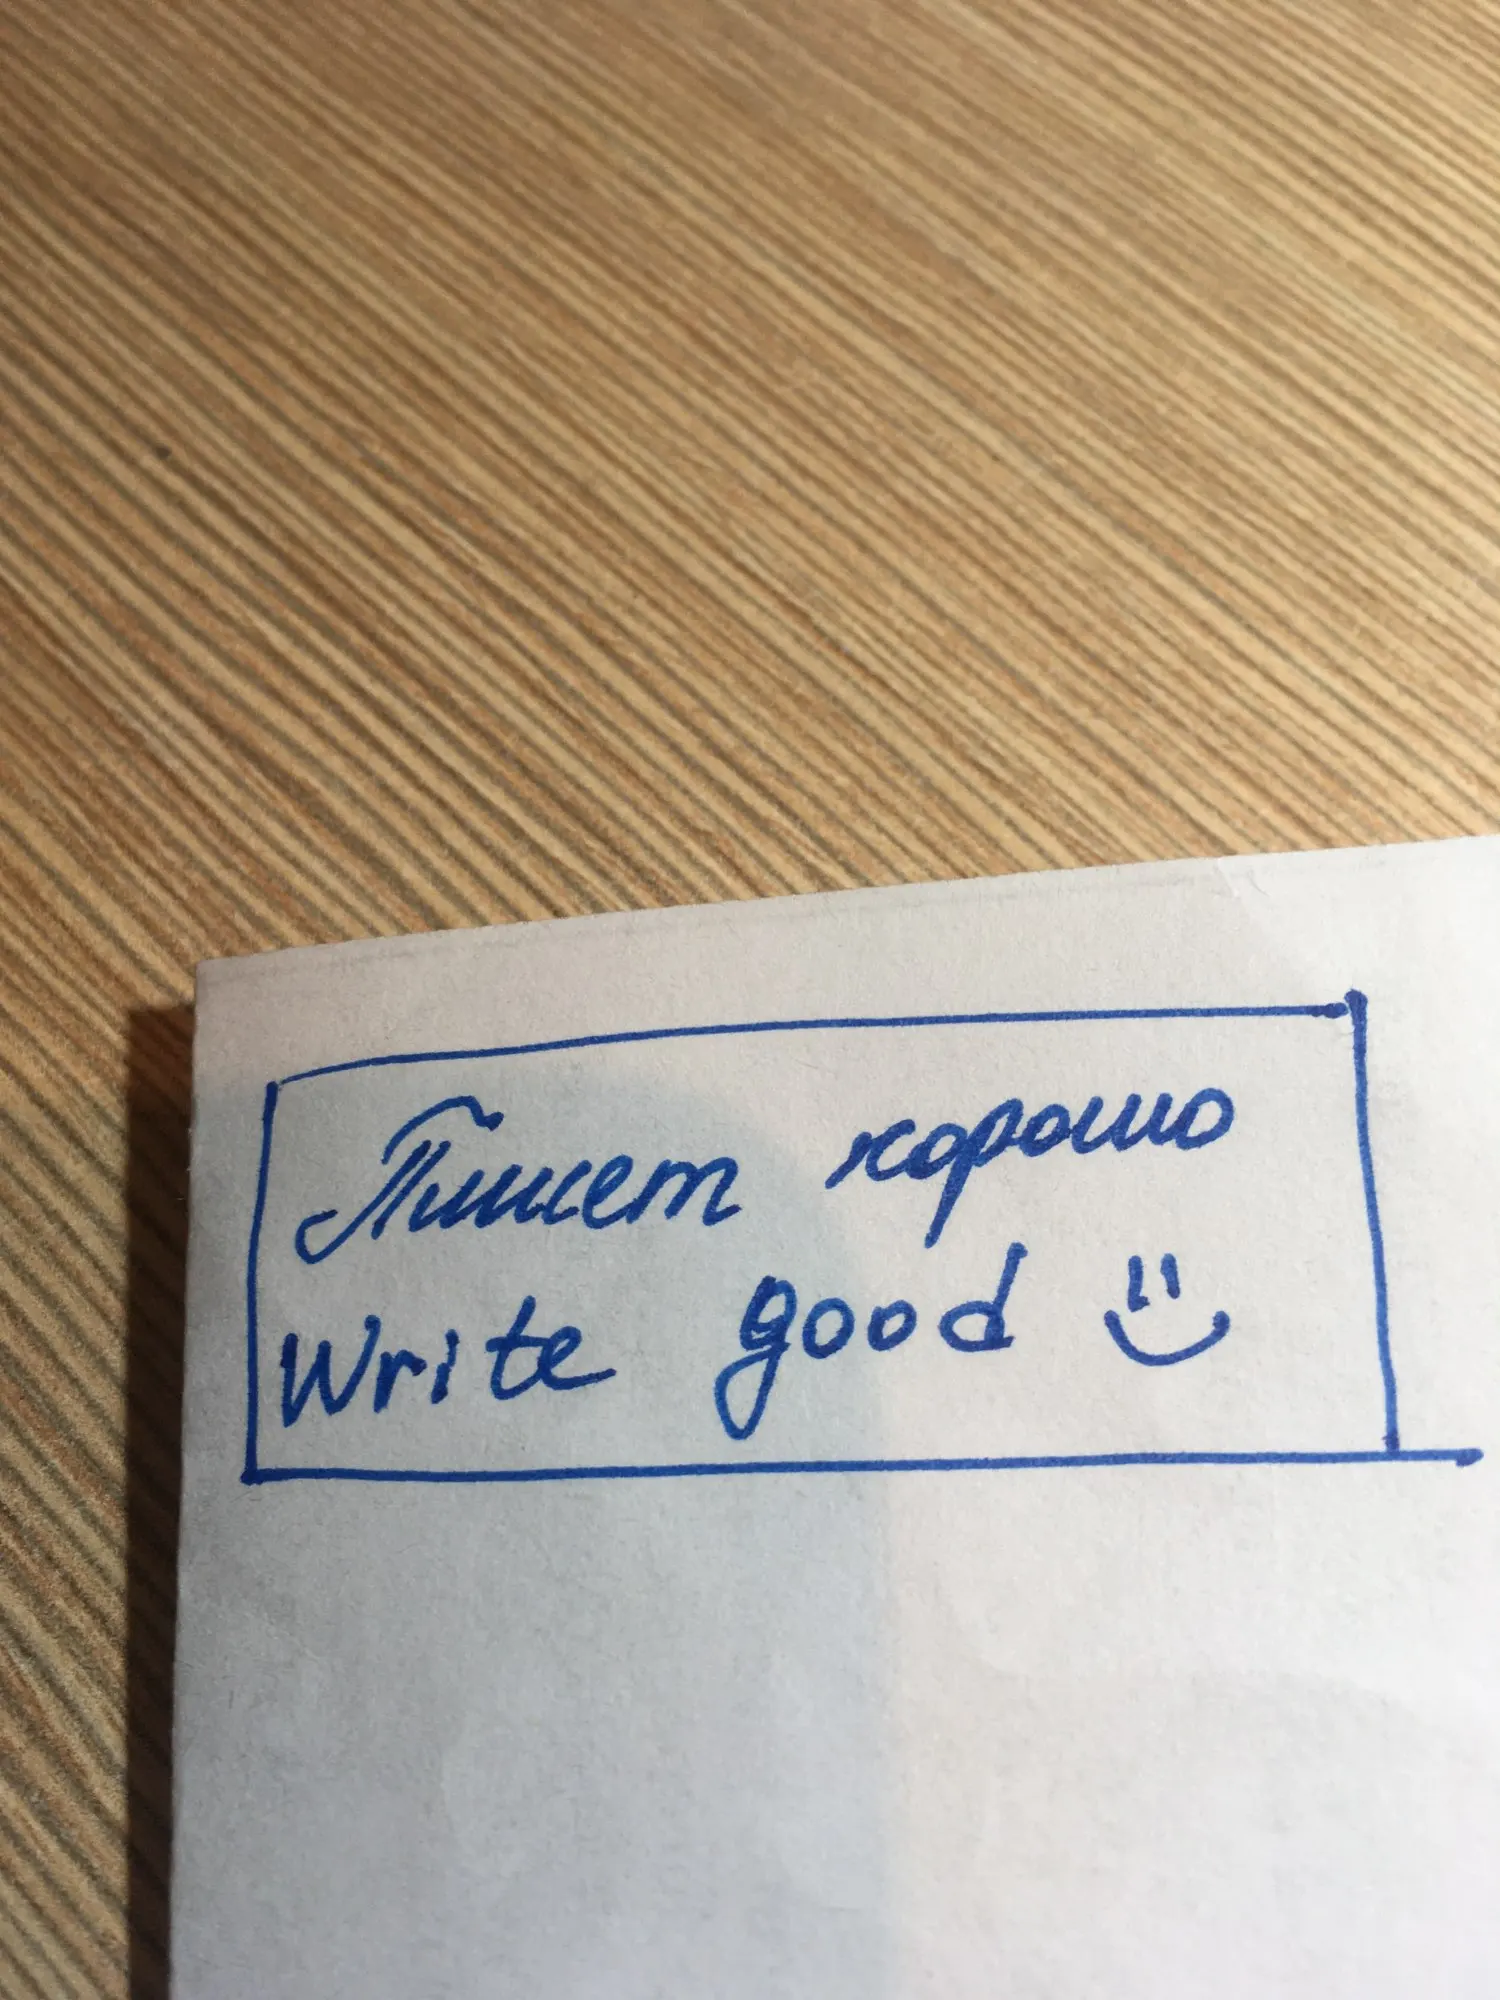 Пишет хорошо
Write good